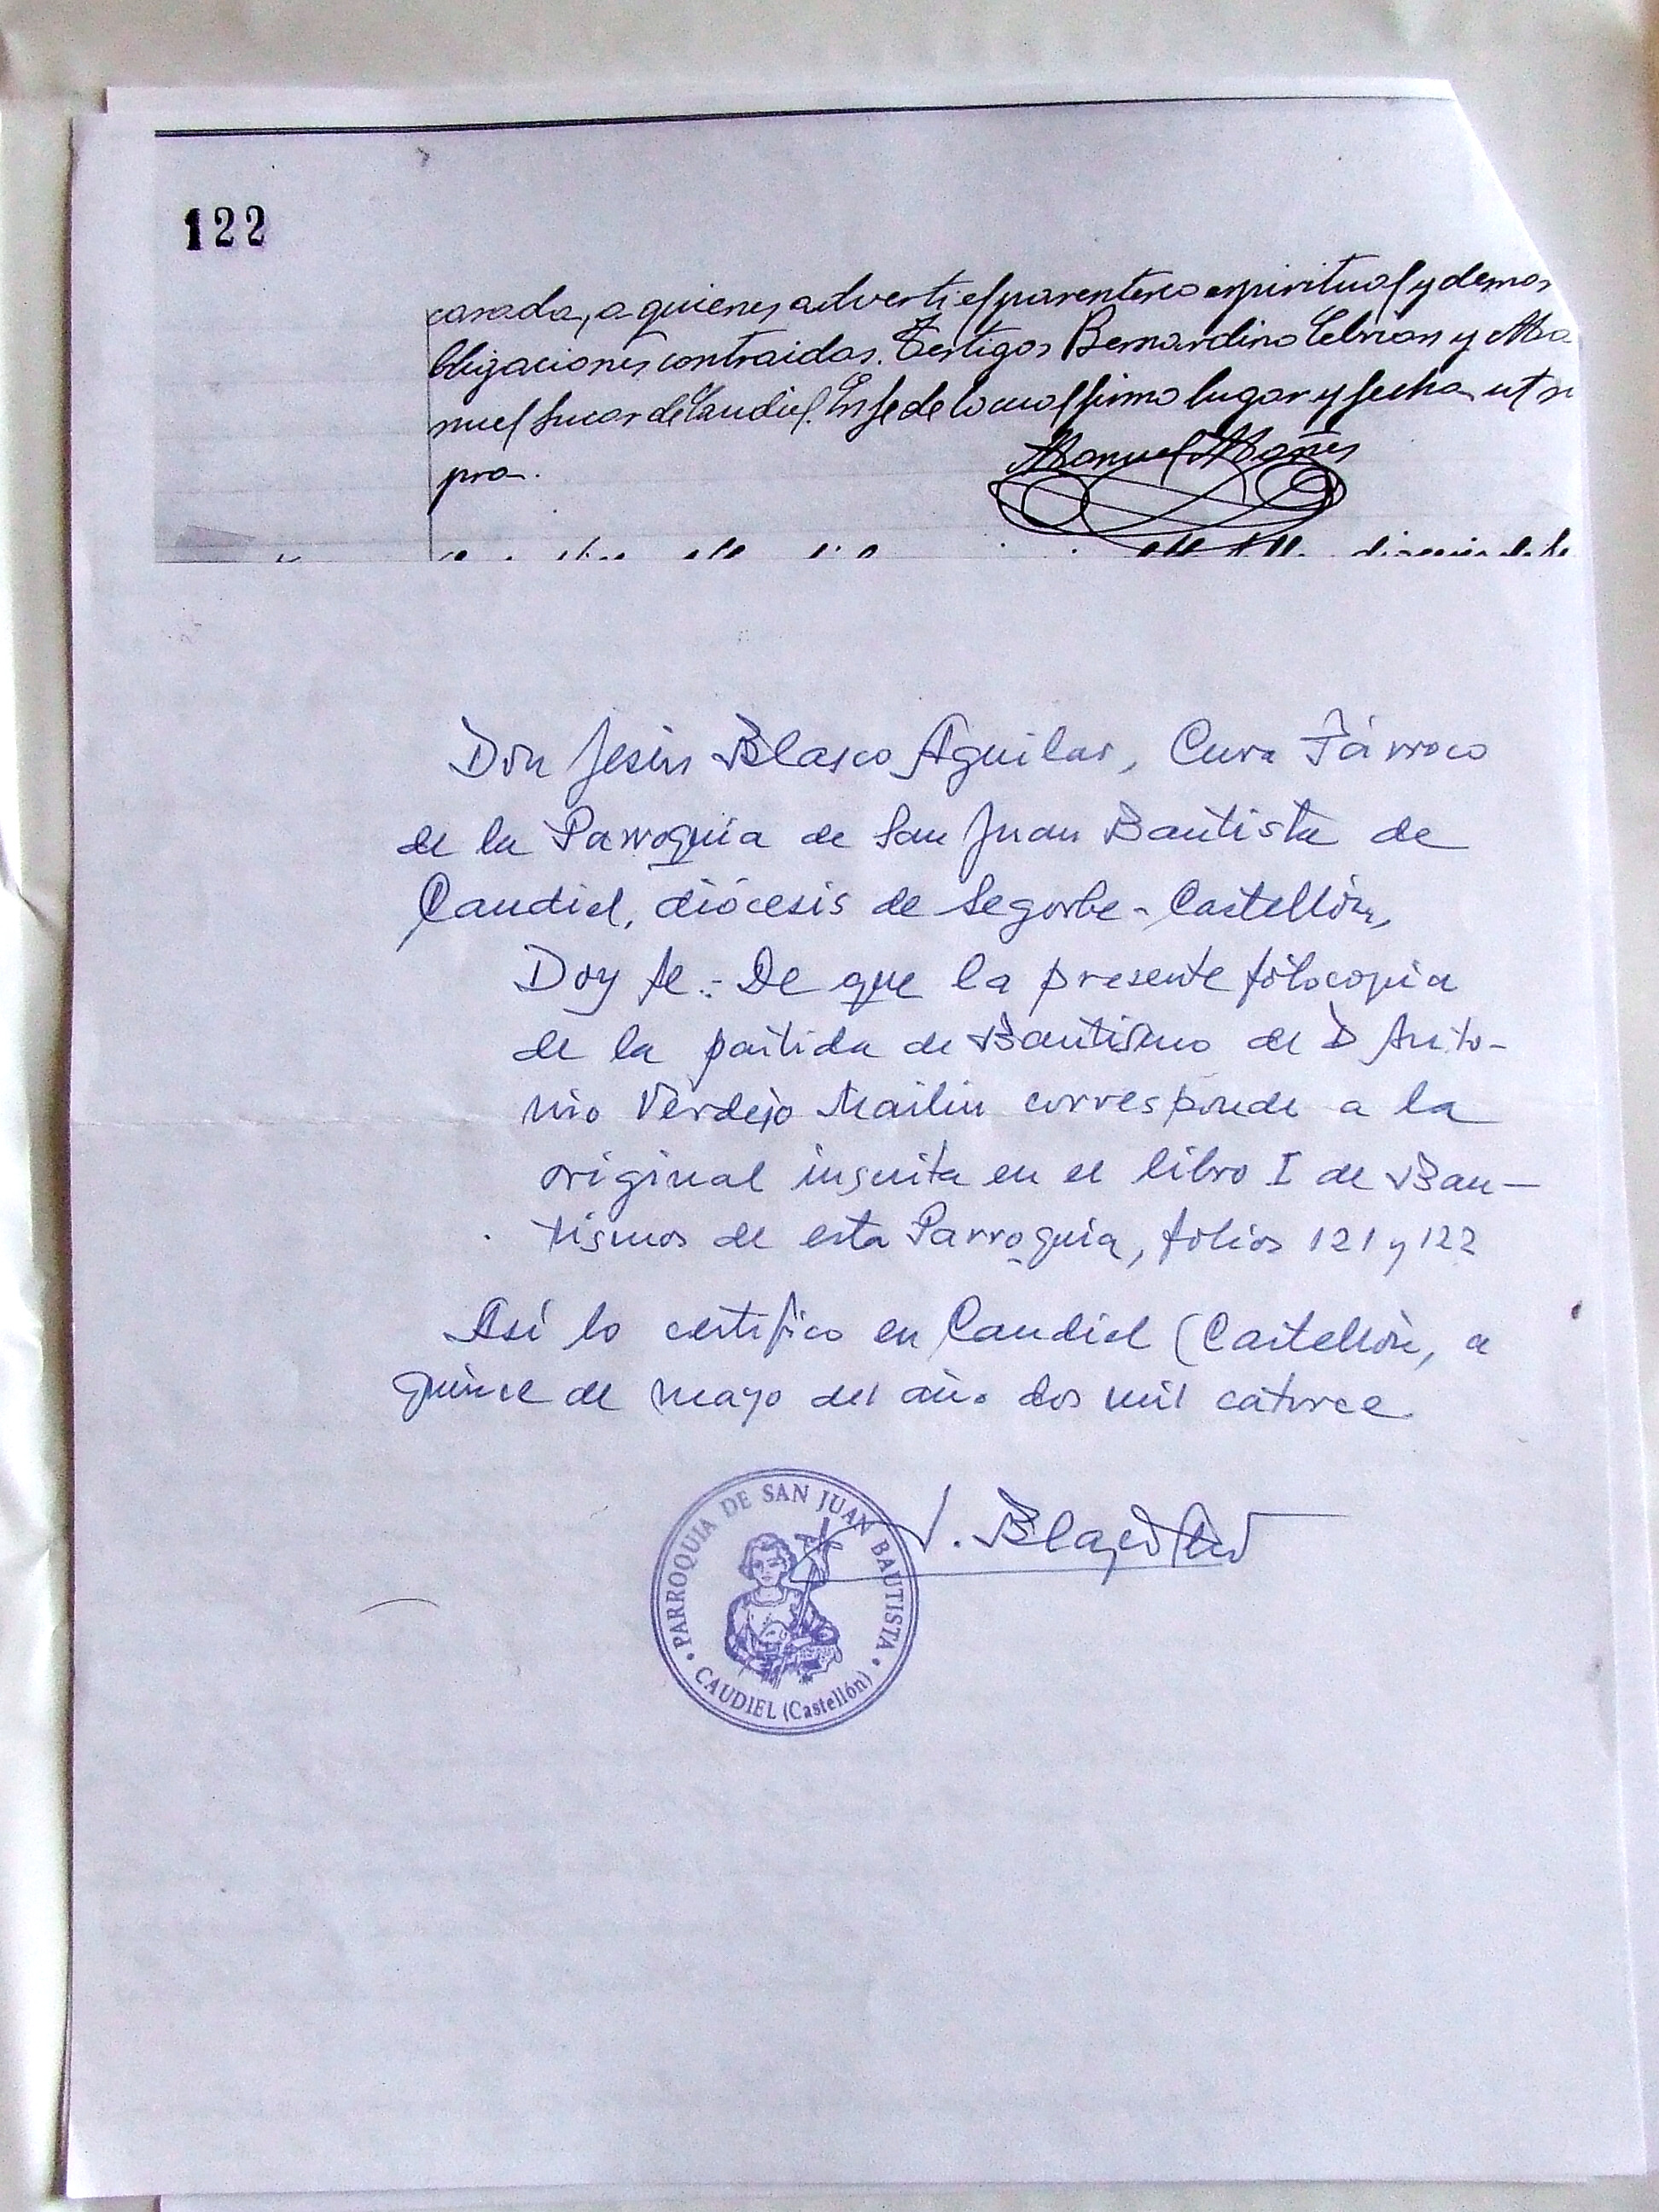 122
casada, a quienes advertí el parentesco espiritual y demas
obligaciones contraidas. Testigos Bernardino Cebrian y Ma
nuel Sucar de Caudiel. En fe de lo cual firmo lugar y fecha ut su
pra.
Manuel Mañes
diocesis de Se
Don Jesús Blasco Aguilar, Cura Párroco
de la Parroquia de San Juan Bautista de
Caudiel, diócesis de Segorbe-Castellón,
Doy fe:- De que la presente fotocopia
de la partida de Bautismo de D Anto-
nio Verdejo Mailin corresponde a la
original inscrita en el libro I de Bau-
tismos de esta Parroquia, folios 121 y 122
Así lo certifico en Caudiel (Castellón, a
quince de mayo del año dos mil catorce
J. Blasco
PARROQUIA DE SAN JUAN BAUTISTA
CAUDIEL (Castellón)